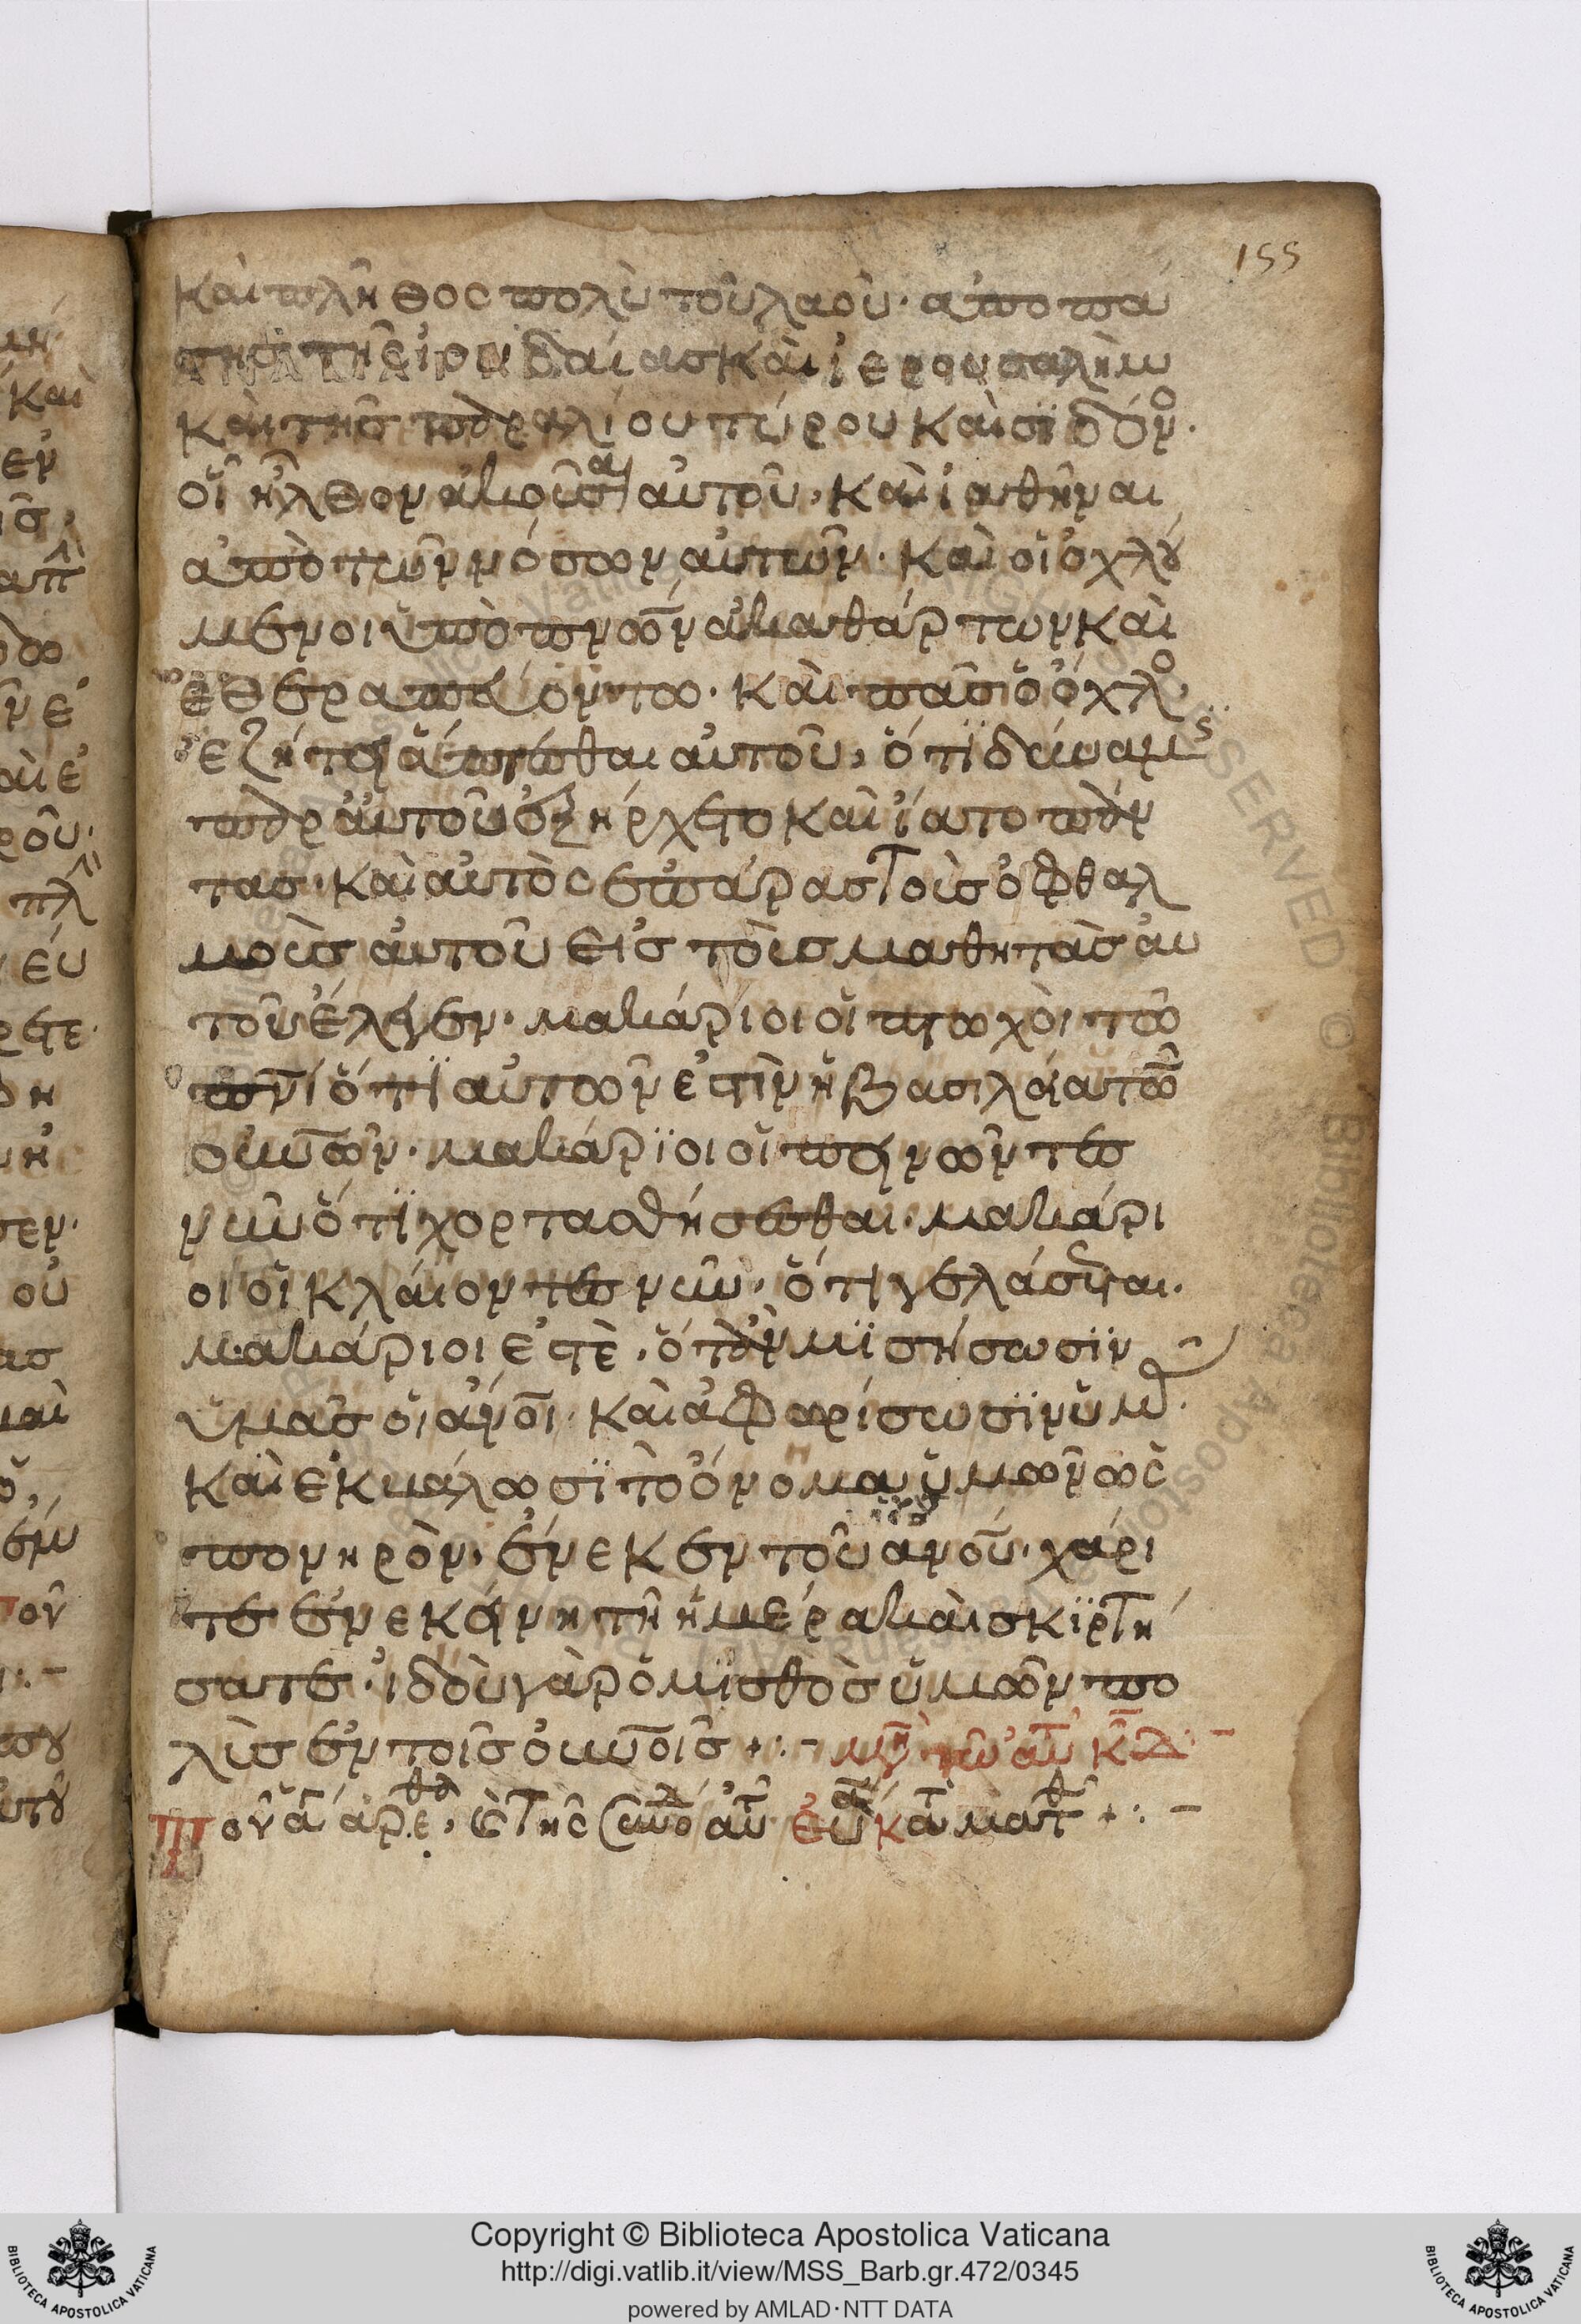 155
και πλῆθος πολὺ τοῦ λαοῦ· ἀπο πά
σης τῆς ἰουδαίας και ἱερουσαλὴμ
και τῆς παραλίου τύρου και σϊδόνο·
οἳ ἦλθον ἀκοῦσαι αὐτοῦ· και ἰαθῆναι
ἀπὸ τῶν νόσων αὐτῶν· και οἱ ὀχλού
μενοι ὑπὸ πνων ἀκαθάρτων και
ἐθεραπεύοντω· και πᾶς ὁ ὄχλο
ἐζήτει ἅπτεσθαι αὐτοῦ, ὅτϊ δύναμις
παρ αὐτοῦ ἐξήρχετο και ἰάτο πάν
τας· και αὐτὸς επάρας τοὺς ὀφθαλ
μοὺς αὐτοῦ εἰς τοὺς μαθητὰς αὐ
τοῦ ἔλεγεν· μακάριοι οἱ πτωχοὶ τῶ
πνι ὅτϊ αὐτων ἐστὶν ἡ βασιλεία τῶν
ουνων· μακάρϊοι οἱ πεινωντες
νῦν ὅτϊ χορτασθήσεσθαι· μακάρι
οι οἱ κλαίοντες νῦν· ὅτι γελάσεται·
μακάριοι ἐστὲ· ὅταν μϊσήσωσϊν
ὑμᾶς οἱ ἀνοι· και ἀφωρίσωσϊν ὑμᾶς·
και ἐκβάλωσϊ τὸ ὄνομα ὑμων ὡς
πονηρὸν· ἕνεκεν τοῦ ανου· χάρι
τε ἐν εκείνη τῆ ἡμέρα και σκϊρτή
σατε· ἰδοὺ γὰρ ὁ μϊσθὸς ὑμων πο
λὺς ἐν τοῖς οὐνοῖς +:-
+:-
Copyright © Biblioteca Apostolica Vaticana
http://digi.vatlib.it/view/MSS_Barb.gr.472/0345
powered by AMLAD·NTT DATA
BIBLIOTECA APOSTOLICA VATICANA
BIBLIOTECA APOSTOLICA VATICANA